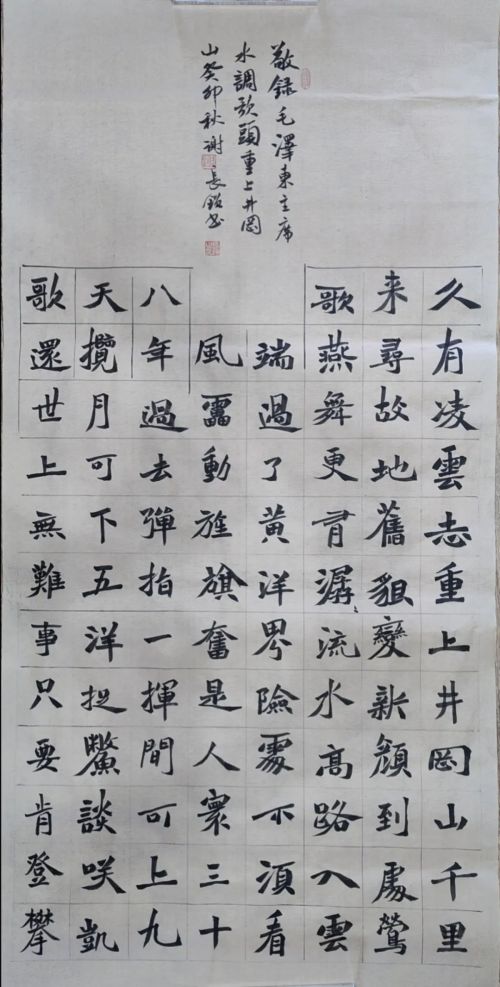 敬録毛澤東主席
水調歌頭重上井岡
山癸卯秋謝長書
久有凌雲志重上井岡山千里
来尋故地舊貌變新顔到處鶯
歌燕舞更有潺〻流水高路入雲
端過了黄洋界險處不須看
風雷動旌旗奮是人寰三十
八年過去彈指一揮間可上九
天攬月可下五洋捉鱉談咲凱
歌還世上無難事只要肯登攀